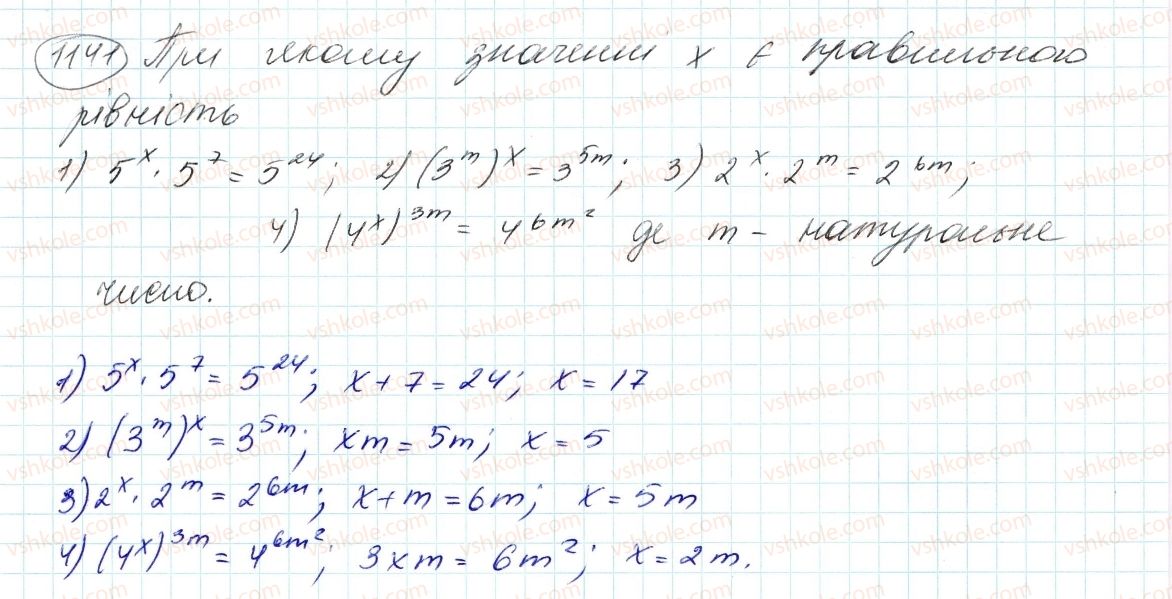 1141 При якому значенні x є правильною
рівність
1) 5^x · 5^7 = 5^24; 2) (3^m)^x = 3^5m; 3) 2^x · 2^m = 2^6m;
4) (4^x)^3m = 4^6m² де m – натуральне
число.
1) 5^x · 5^7 = 5^24; x + 7 = 24; x = 17
2) (3^m)^x = 3^5m; xm = 5m; x = 5
3) 2^x · 2^m = 2^6m; x + m = 6m; x = 5m
4) (4^x)^3m = 4^6m²; 3xm = 6m²; x = 2m.